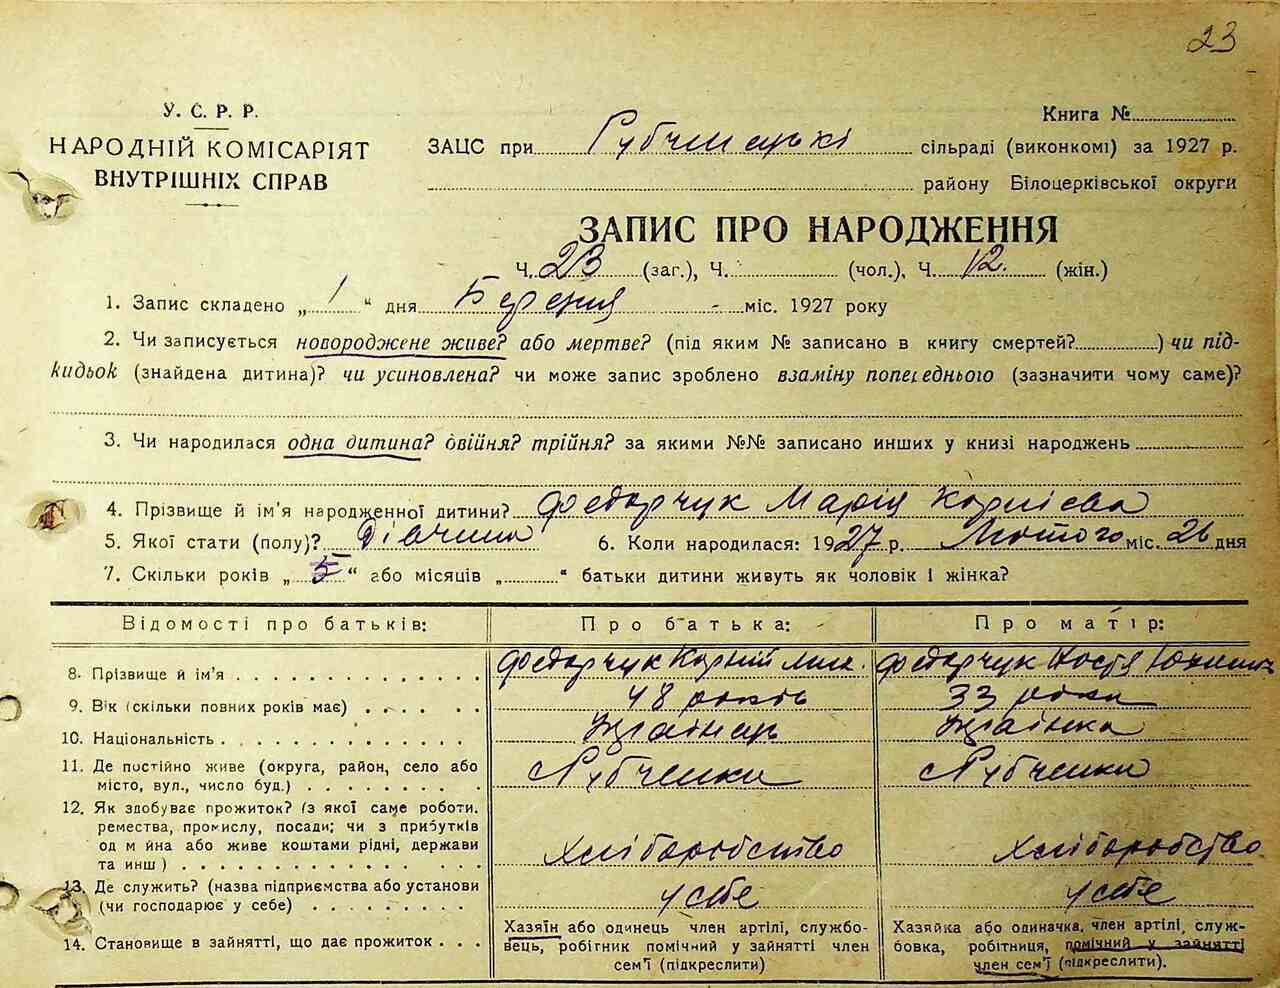 23
У. С. Р. Р.
НАРОДНІЙ КОМІСАРІЯТ
ВНУТРІШНІХ СПРАВ
Книга №
ЗАЦС при Рубченецькі сільраді (виконкомі) за 1927 р.
району Білоцерківської округи
ЗАПИС ПРО НАРОДЖЕННЯ
Ч. 23 (заг.), Ч. (чол.), Ч. 12. (жін.)
1. Запис складено „ 1 “ дня Березня міс. 1927 року
2. Чи записується новороджене живе? або мертве? (під яким № записано в книгу смертей? ) чи під-
кидьок (знайдена дитина)? чи усиновлена? чи може запис зроблено взаміну попереднього (зазначити чому саме)?
3. Чи народилася одна дитина? двійня? трійня? за якими №№ записано инших у книзі народжень
4. Прізвище й ім'я народженної дитини? Федорчук Марія Корнієва
5. Якої стати (полу)? Дівчина 6. Коли народилася: 1927 р. Лютого міс. 26 дня
7. Скільки років „ 5 “ або місяців „ “ батьки дитини живуть як чоловік і жінка?
Відомості про батьків: Про батька: Про матір:
8. Прізвище й ім'я Федорчук Корній Федорчук
9. Вік (скільки повних років має) 48 років 33 роки
10. Національність Українець Українка
11. Де постійно живе (округа, район, село або Рубченки Рубченки
місто, вул., число буд.)
12. Як здобуває прожиток? (з якої саме роботи.
ремества, промислу, посади; чи з прибутків
од м йна або живе коштами рідні, держави Хліборобство Хліборобство
та инш )
13. Де служить? (назва підприємства або установи у себе у себе
(чи господарює у себе)
14. Становище в зайнятті, що дає прожиток
Хазяїн або одинець член артілі, службо-
вець, робітник помічний у зайнятті член
сем'ї (підкреслити)
Хазяйка або одиначка, член артілі, служ-
бовка, робітниця, помічний у зайнятті
член сем'ї (підкреслити).